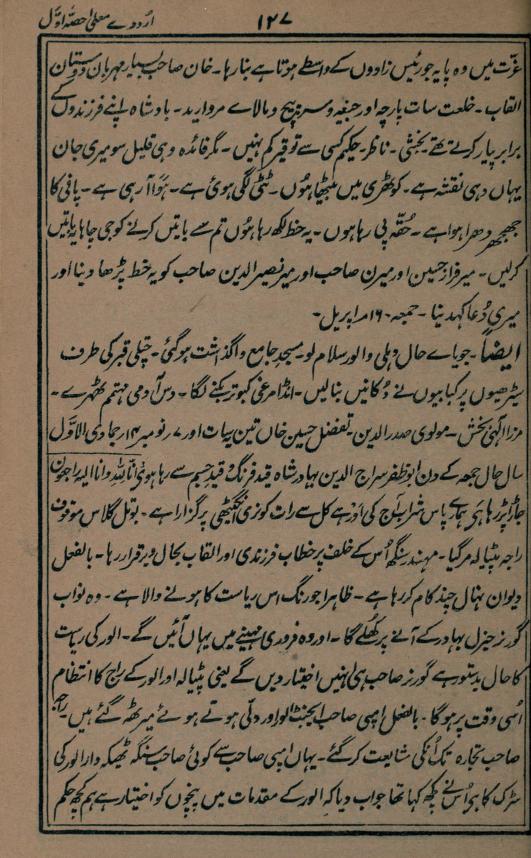 اردوے معلیٰ حصہ اول
۱۲۷
عزّت میں وہ پایہ جو رئیس زادوں کے واسطے ہوتا ہے بنا رہا۔ خان صاحب بسیار مہربان دوستان
القاب۔ خلعت سات پارچہ اور جیغہ و سرپیچ و مالاے مروارید۔ بادشاہ اپنے فرزندوں کے
برابر پیار کرتے تھے بخشی۔ ناظر۔ حکیم کسی سے توقیر کم نہیں۔ مگر فائدہ وہی قلیل سو میری جان
یہاں وہی نقشہ ہے۔ کوٹھری میں بیٹھا ہوں۔ ٹٹی لگی ہوئی ہے۔ ہوا آ رہی ہے۔ پانی کا
جھجھر دھرا ہوا ہے۔ حقّہ پی رہا ہوں۔ یہ خط لکھ رہا ہوں تم سے باتیں کرنے کو جی چاہا یہ باتیں
کرلیں۔ میر سرفراز حسین اور میرن صاحب اور میر نصیر الدین صاحب کو یہ خط پڑھا دینا اور
میری دُعا کہدینا۔ جمعہ۔ ۱۶ اپریل۔
ایضاً۔ جویاے حال دہلی و الور سلام لو۔ مسجد جامع واگذاشت ہوگئی۔ چتلی قبر کی طرف
سیڑھیوں پر کبابیوں نے دُکانیں بنالیں۔ انڈا مرغی کبوتر بکنے لگا۔ دس آدمی مہتمم ٹھہرے۔
مرزا الٰہی بخش۔ مولوی صدر الدین۔ تفضل حسین خاں تین یہ سات اور ۷ر نومبر ۱۴ر جمادی الاوّل
سال حال جمعہ کے دن ابو ظفر سراج الدین بہادر شاہ قید فرنگ و قید جسم سے رہا ہوئے انا للہ وانا الیہ راجعون
جاڑا پڑ رہا ہے ہمارے پاس شراب آج کی اور ہے کل سے رات کو نری انگیٹھی پر گزارا ہے۔ بوتل گلاس موقوف
راجہ پٹیالہ مرگیا۔ مہندر سنگھ اُس کے خلف پر خطاب فرزندی اور القاب بحال و برقرار رہا۔ بالفعل
دیوان نہال چند کام کر رہا ہے۔ ظاہرا جو رنگ اس ریاست کا ہونے والا ہے۔ وہ نواب
گورنر جنرل بہادر کے آنے پر کھُلے گا۔ اور وہ فروری مہینے میں یہاں آئیں گے۔ الور کی ریاست
کا حال بدستور ہے گورنر صاحب ہی انہیں اختیار دیں گے یعنی پٹیالہ اور الور کے راج کا انتظام
اُسی وقت پر ہوگا۔ بالفعل امپی صاحب ایجنٹ الور اور دلی ہوتے ہوئے میرٹھ گئے ہیں۔ راجہ
صاحب تجارہ تک اُنکی مشایعت کر گئے۔ یہاں امپی صاحب سے کوئی صاحب سنگہ ٹھیکہ دار الور کی
سڑک کا ہے اُس نے کچھ کہا تھا جواب دیا کہ الور کے مقدمات میں پنچوں کو اختیار ہے ہم کچھ حکم